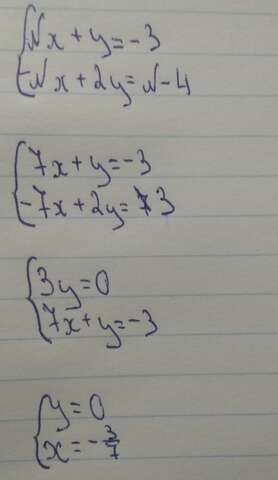 Nx + y = -3
-Nx + 2y = N - 4
7x + y = -3
-7x + 2y = 3
3y = 0
7x + y = -3
y = 0
x = -3/7